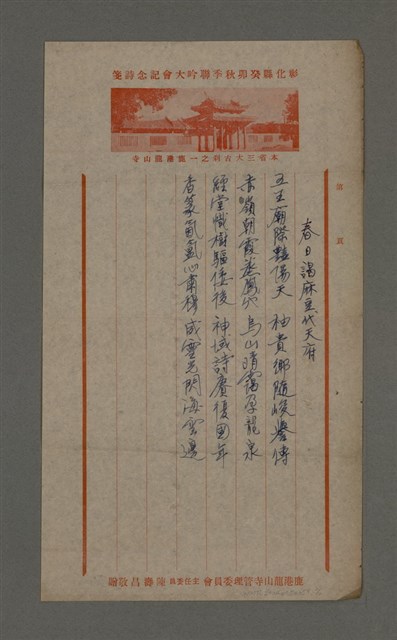 彰化縣癸卯秋季聯吟大會記念詩箋
本省三大古剎之一鹿港龍山寺
第 頁
春日謁麻豆代天府
五王廟際豔陽天 柚貴鄉隨峻譽傳
赤嶺朝霞蒸鳳穴 烏山晴靄孕龍泉
經堂幟樹驅倭後 神域詩賡復國年
香篆氤氳心肅穆 威靈光閃海雲邊
鹿港龍山寺管理委員會 主任委員 陳壽昌敬贈